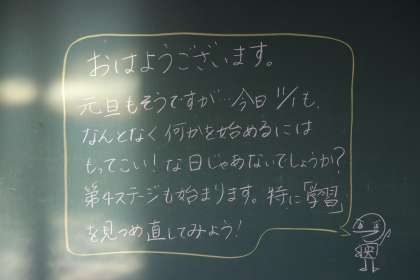 おはようございます。
元旦もそうですが…今日11/1も、
なんとなく何かを始めるには
もってこい!な日じゃあないでしょうか?
第4ステージも始まります。特に「学習」
を見つめ直してみよう!